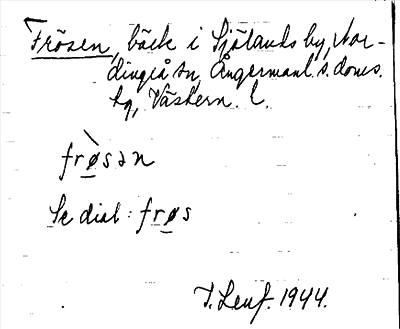 Frösen, bäck i Sjölands by, Nor-
dingrå sn, Ångermanl. s. doms.
hg, Västern. l.
frø̀sən
Se dial. frøs
T. Leuf. 1944.